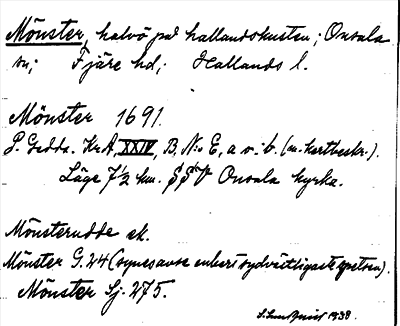 Mönster, halvö på hallandskusten; Onsala
sn; Fjäre hd; Hallands l.
Mönster 1691.
P. Gedda. KrA, XXIV, B, N:o E, a v. b. (m. kartbeskr.).
Läge 7½ km. Onsala kyrka.
Mönsterudde ek.
Mönster G. 24 (synes avse enbart sydvästligaste spetsen).
Mönster Sj. 275.
1938